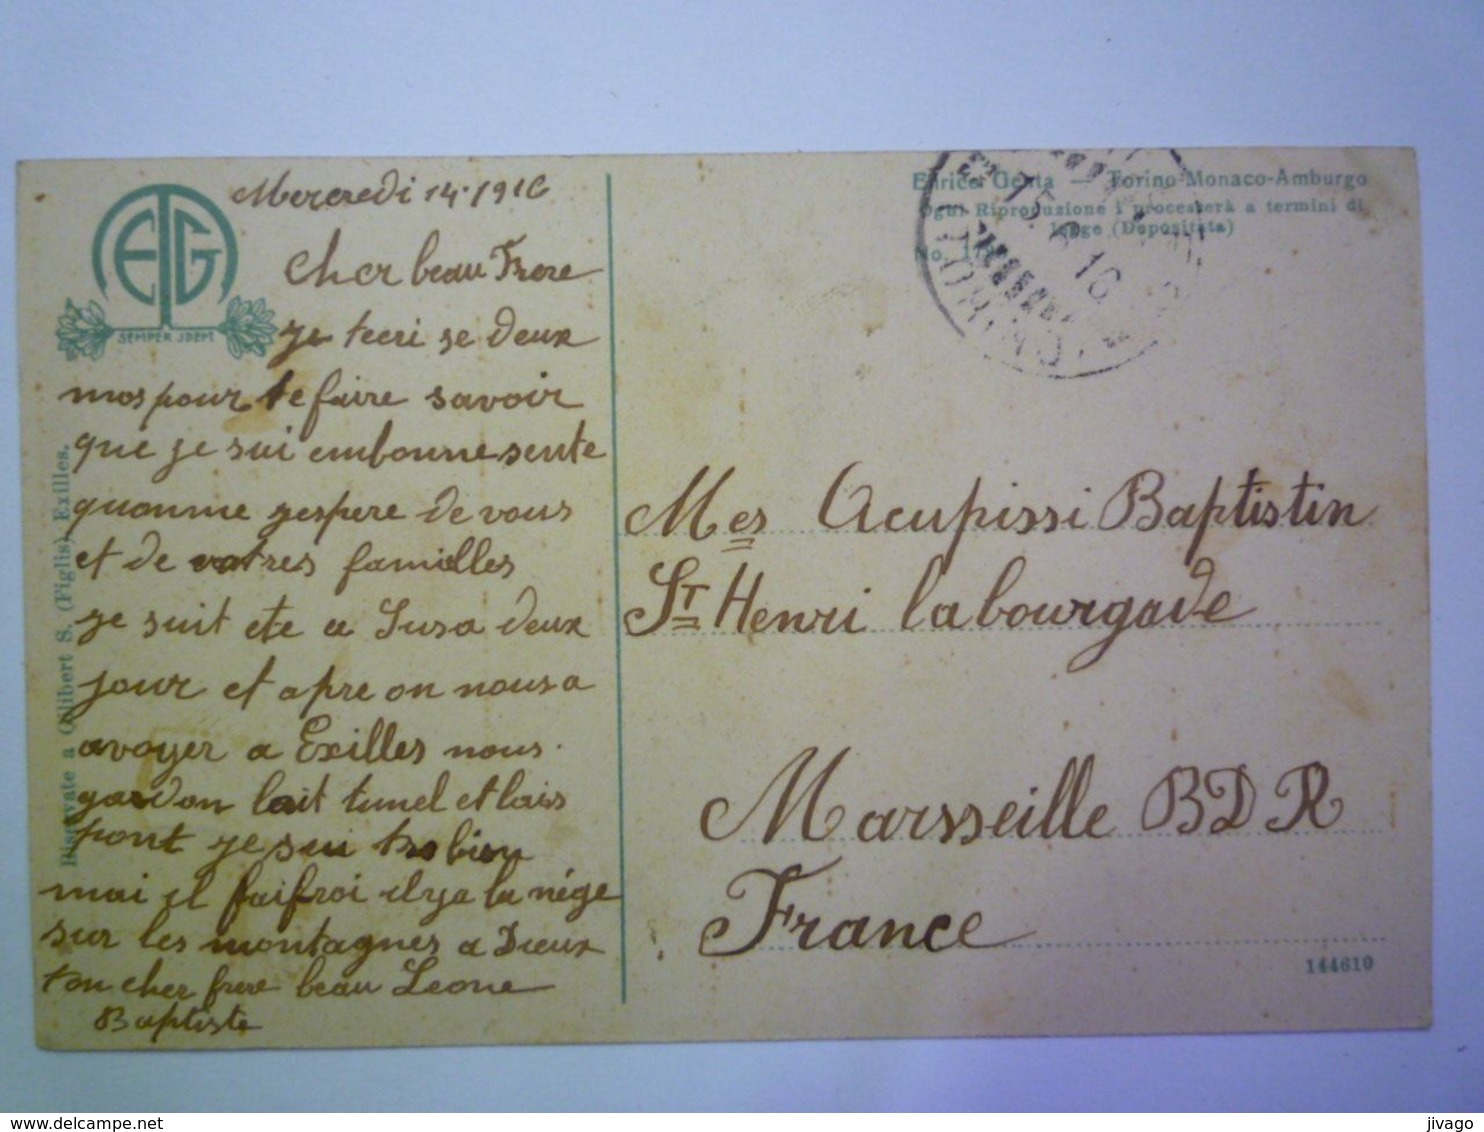 ETG
SEMPER IDEM
Mercredi 14·1916
Cher beau Frere
je tecri se deux
mos pour te faire savoir
que je sui embonne sente
quomme jespere de vous
et de votres familles
je suit ete a Susa deux
jour et apre on nous a
avoyer a Exilles nous
gardon lait tunel et lais
pont je sui tro bien
mai il fai froi il ya la nége
sur les montagnes a Dieux
ton cher frere beau Leone
Baptiste
S. (Figlis) Exilles.
Enrico Genta — Torino-Monaco-Amburgo
Ogni Riproduzione i processerà a termini di
legge (Depositata)
No. 1
15 16
TORINO
Mes Acupissi Baptistin
St Henri labourgade
Marsseille BDR
France
144610
jivago
www.delcampe.net